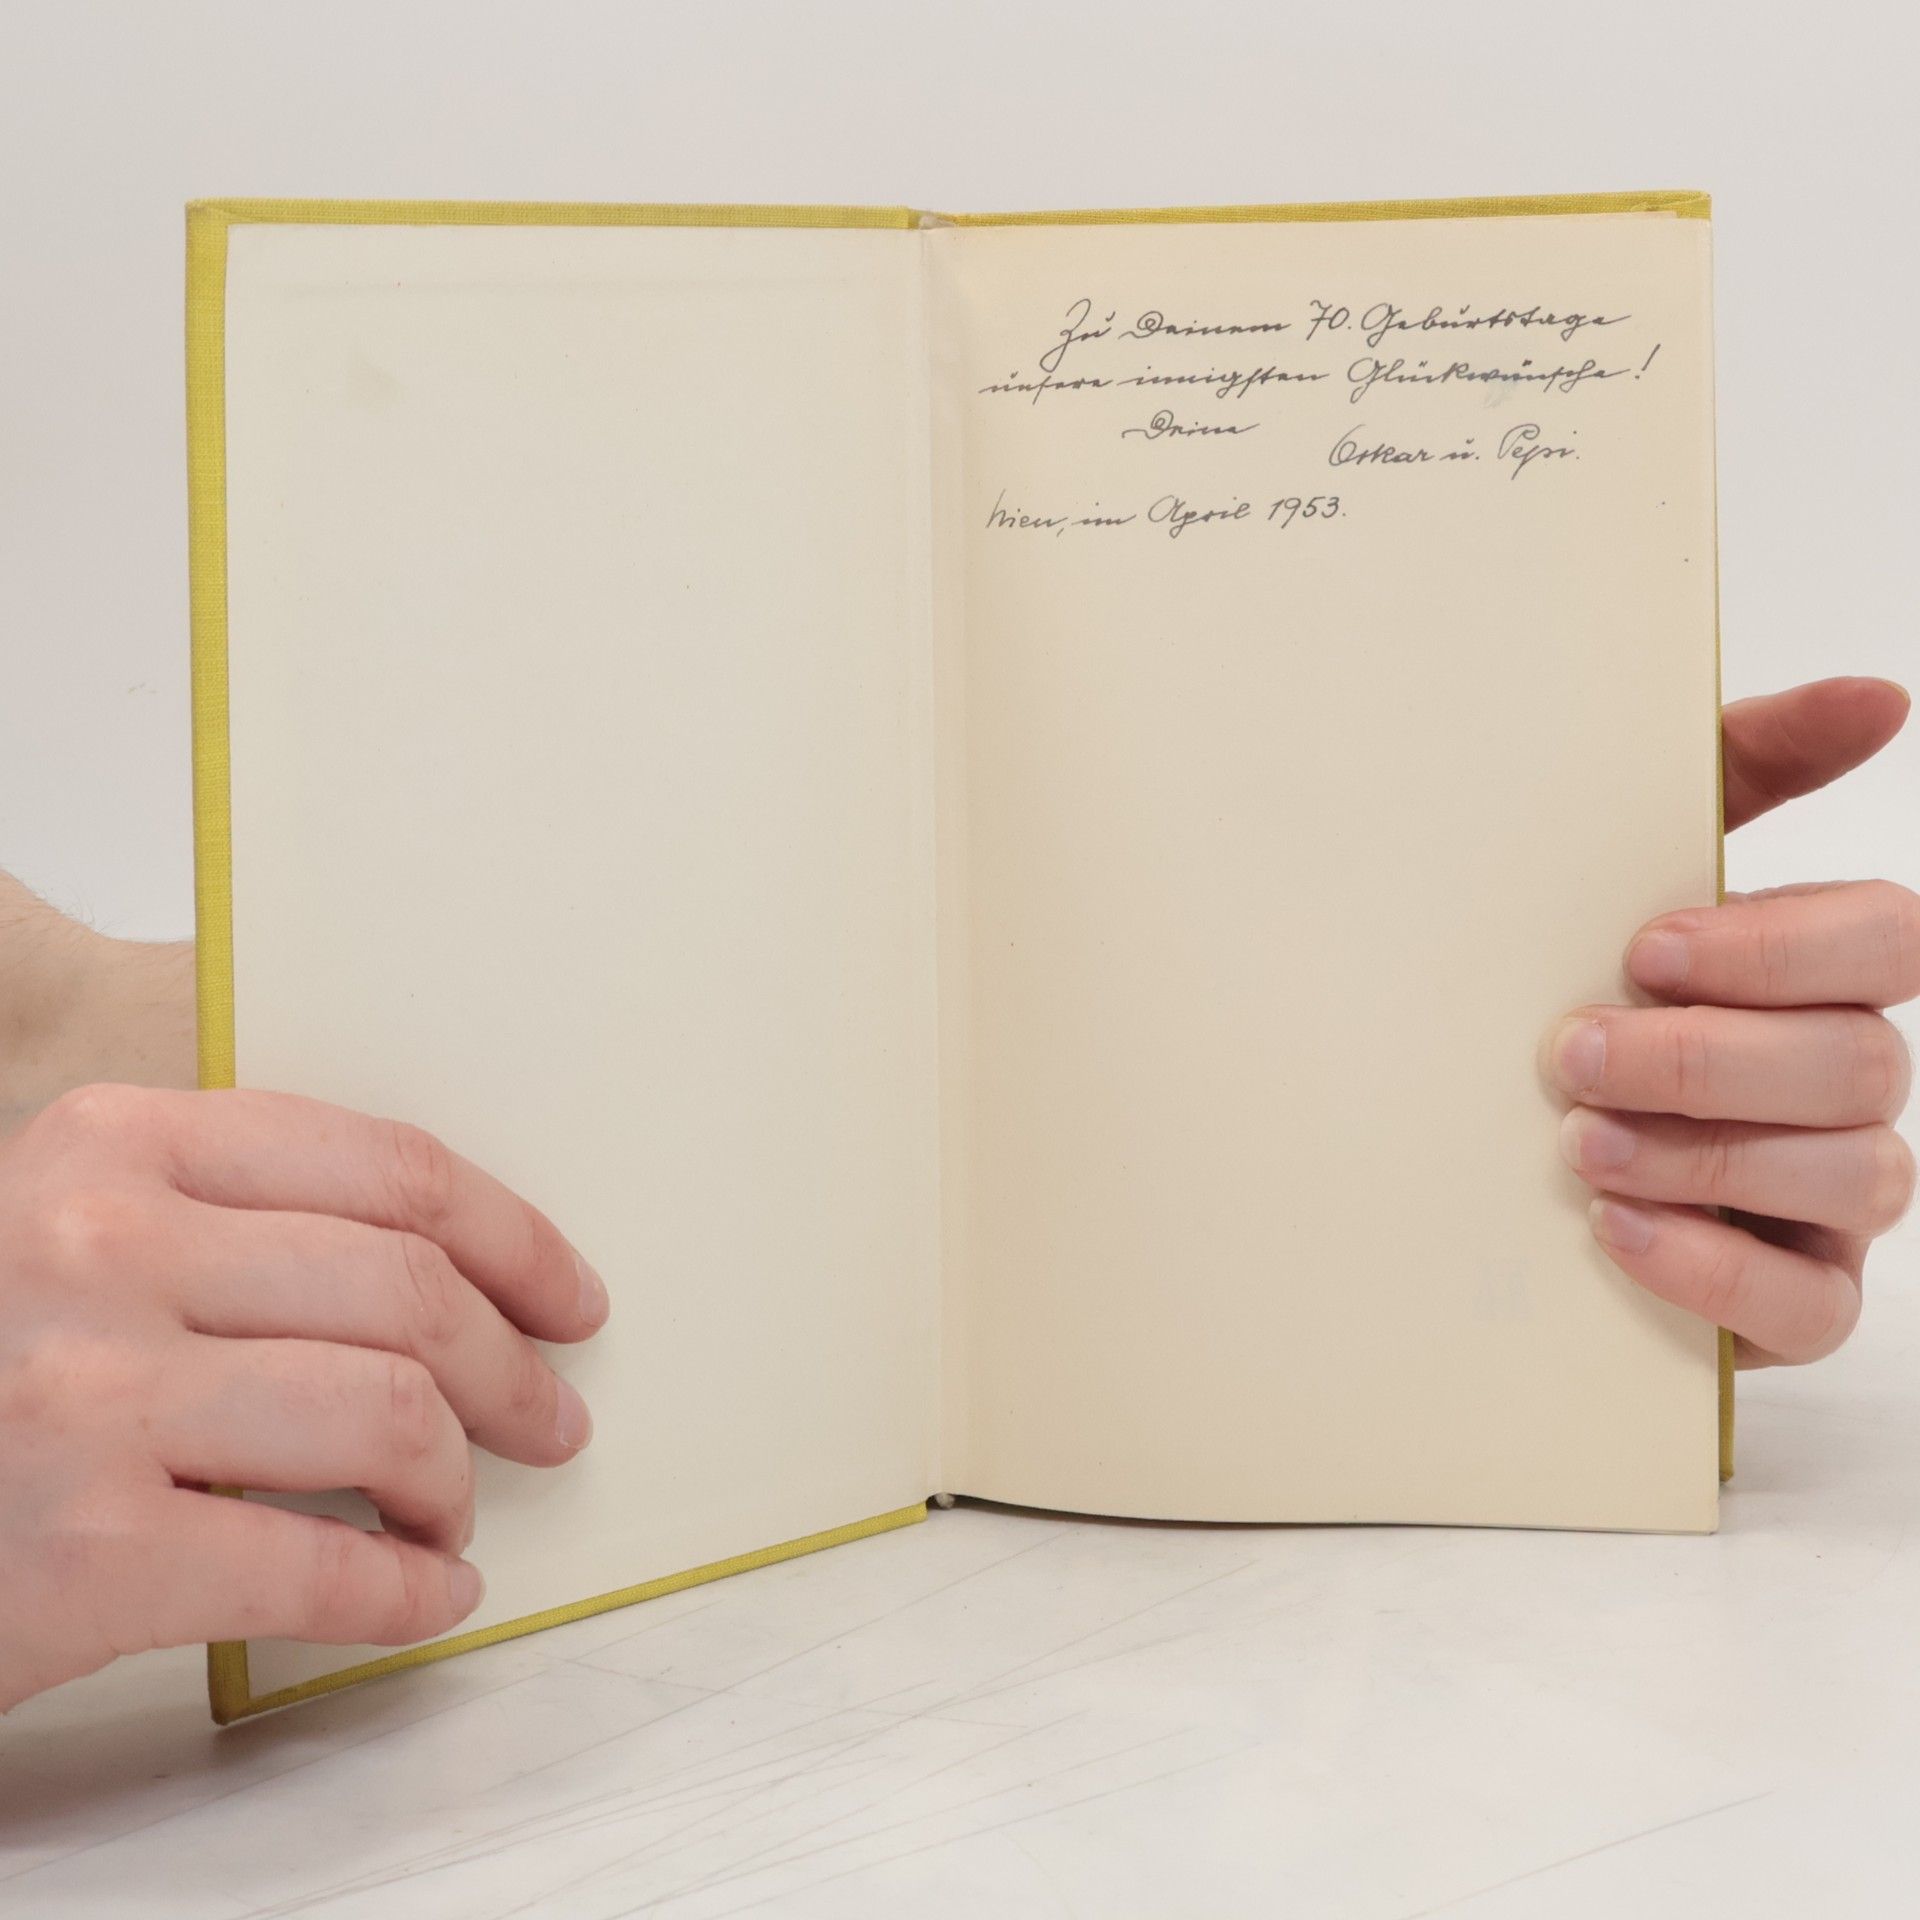 Zu Deinem 70. Geburtstage
unsere innigsten Glückwünsche!
Deine
Oskar u. Pepi.
Wien, im April 1953.